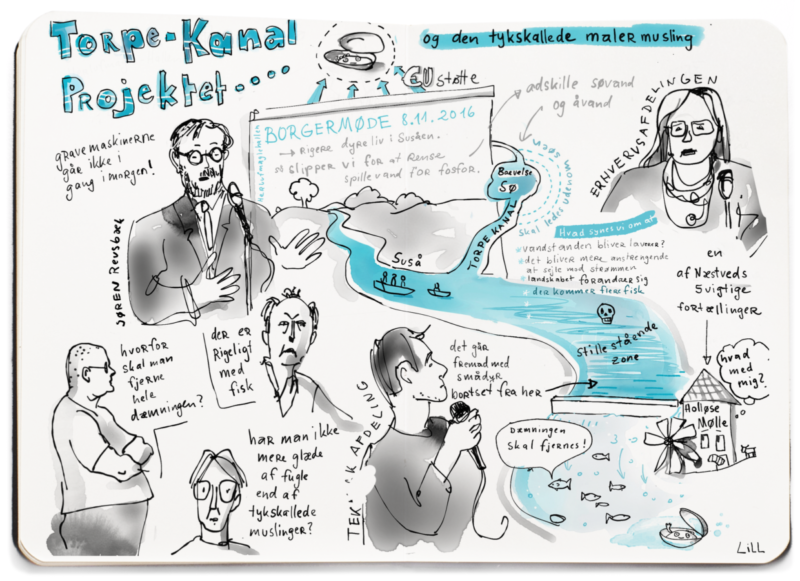 Torpe-Kanal
Projektet....
og den tykskallede malermusling
EU støtte
adskille søvand
og åvand
BORGERMØDE 8.11.2016
→ Rigere dyreliv i Susåen.
slipper vi for at rense
spillevand for fosfor.
gravemaskinerne
går ikke i
gang i morgen!
SØREN Revsbæk
ERHVERVSAFDELINGEN
Bavelse
SØ
TORPE KANAL
Skal ledes udenom søen
Suså
Hvad synes vi om at
vandstanden bliver lavere?
det bliver mere anstrengende
at sejle mod strømmen
landskabet forandrer sig
der kommer flere fisk
en
af Næstveds
5 vigtige
fortællinger
hvorfor
skal man
fjerne
hele
dæmningen?
der er
Rigeligt
med
fisk
har man ikke
mere glæde
af fugle
end af
tykskallede
muslinger?
AFDELING
det går
fremad med
smådyr
bortset fra her
stillestående
zone
hvad
med
mig?
Holløse
Mølle
Dæmningen
skal fjernes!
LiLL